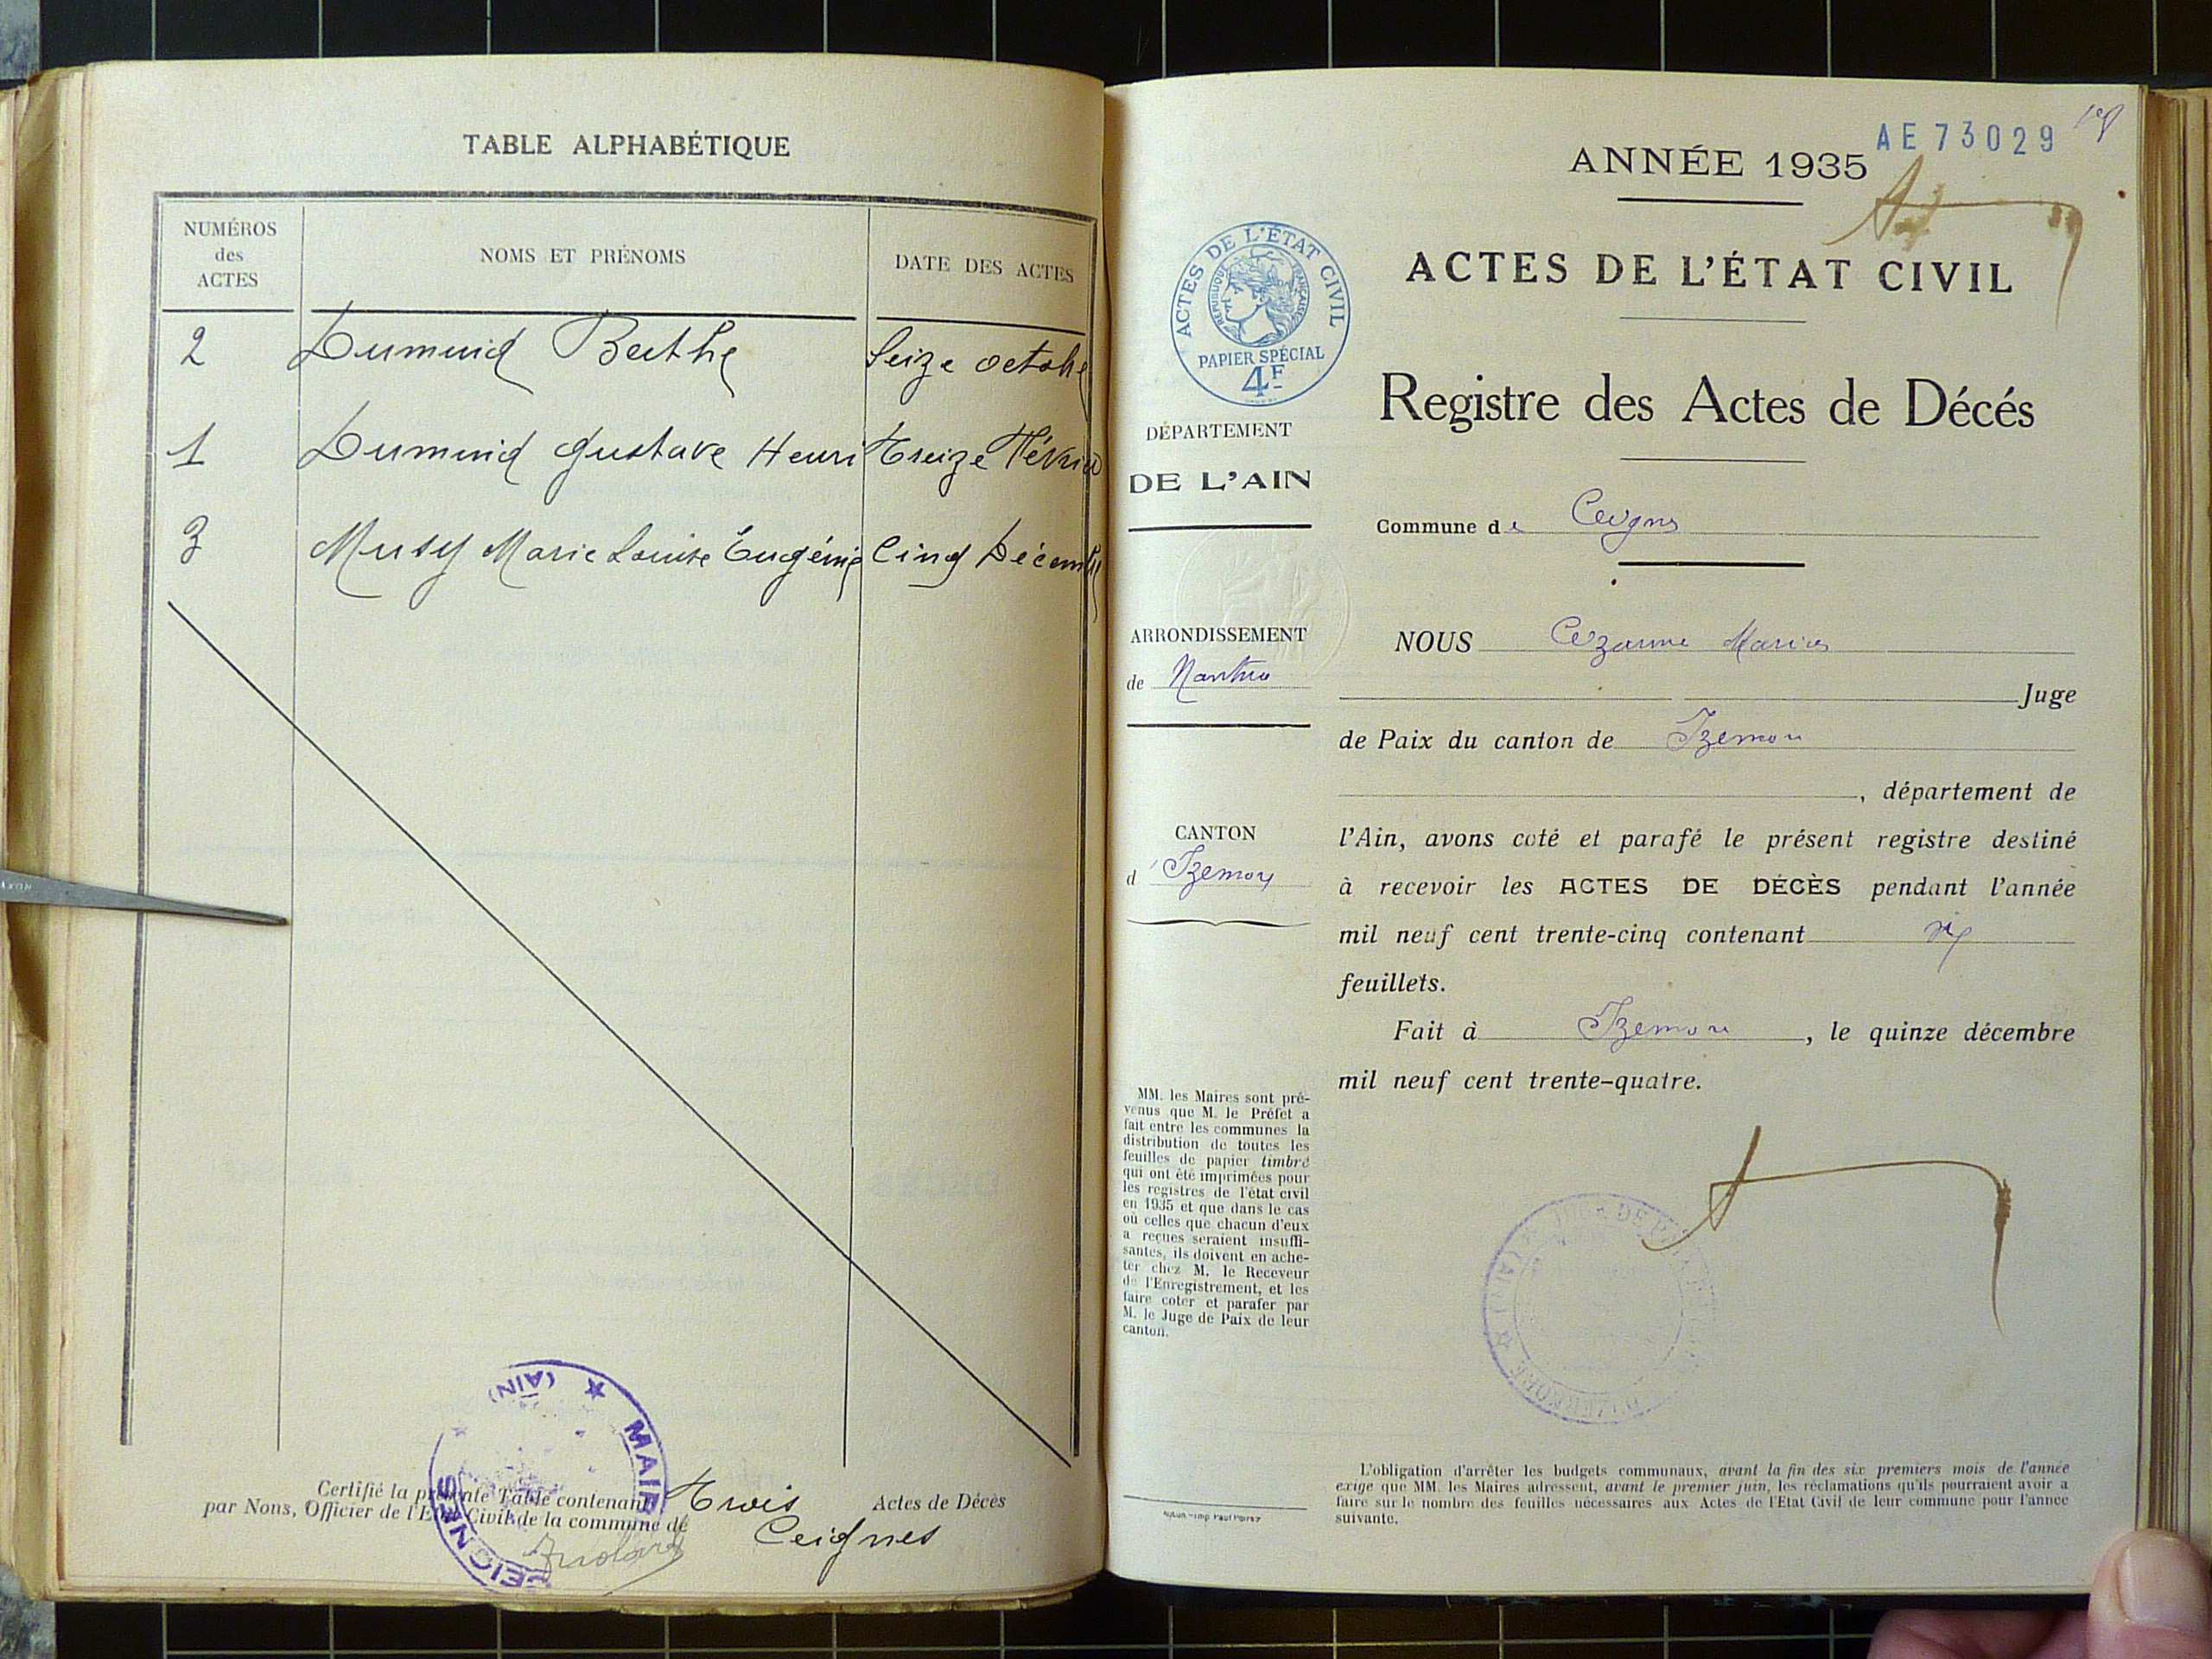 TABLE ALPHABÉTIQUE
NUMÉROS
des
ACTES
NOMS ET PRÉNOMS
DATE DES ACTES
2 Dumund Berthe Seize octobre
1 Dumund Gustave Henri Treize Février
3 Musy Marie Louise Eugénie Cinq Décembre
Certifié la présente Table contenant Trois Actes de Décès
par Nous, Officier de l'Etat Civil de la commune de Ceignes
★ MAIRIE
CEIGNES
(AIN)
AE 73029
ANNÉE 1935
ACTES DE L'ÉTAT CIVIL
ACTES DE L'ÉTAT CIVIL
RÉPUBLIQUE FRANÇAISE
PAPIER SPÉCIAL
4F
Registre des Actes de Décés
DÉPARTEMENT
DE L'AIN
Commune de Ceignes
ARRONDISSEMENT
de Nantua
NOUS Cezanne Marius
Juge
de Paix du canton de Izernore
, département de
CANTON
d'Izernore
l'Ain, avons coté et parafé le présent registre destiné
à recevoir les ACTES DE DÉCÈS pendant l'année
mil neuf cent trente-cinq contenant six
feuillets.
Fait à Izernore, le quinze décembre
mil neuf cent trente-quatre.
MM. les Maires sont pré-
venus que M. le Préfet a
fait entre les communes la
distribution de toutes les
feuilles de papier timbré
qui ont été imprimées pour
les registres de l'état civil
en 1935 et que dans le cas
où celles que chacun d'eux
a reçues seraient insuffi-
santes, ils doivent en ache-
ter chez M. le Receveur
de l'Enregistrement, et les
faire coter et parafer par
M. le Juge de Paix de leur
canton.
L'obligation d'arrêter les budgets communaux, avant la fin des six premiers mois de l'année
exige que MM. les Maires adressent, avant le premier juin, les réclamations qu'ils pourraient avoir à
faire sur le nombre des feuilles nécessaires aux Actes de l'Etat Civil de leur commune pour l'année
suivante.